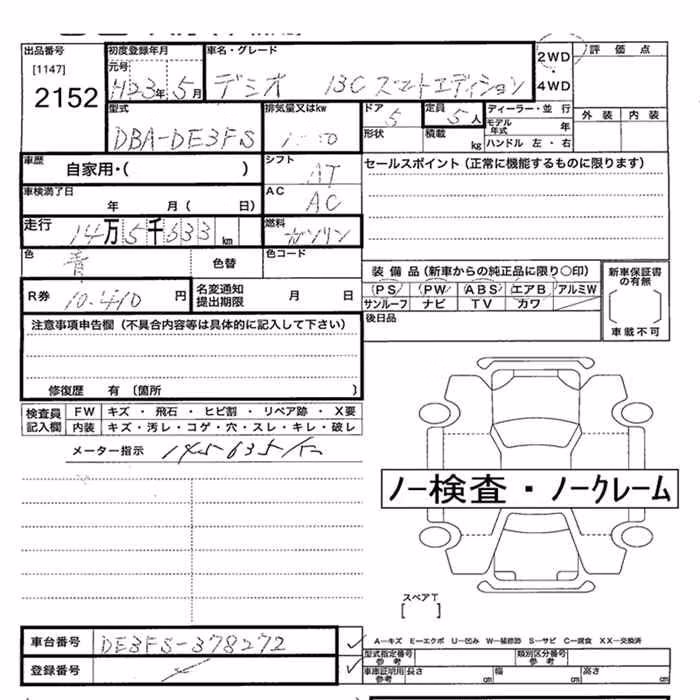 出品番号 初度登録年月 車名・グレード 2WD 評価点
[1147] 元号
2152 H23年 5月 デミオ 13C スマートエディション 4WD
型式 排気量又はkw ドア 定員 ディーラー・並 行 外装 内装
DBA-DE3FS 5 5人 モデル年式 年
形状 積載 kg ハンドル 左・右
車歴 シフト セールスポイント(正常に機能するものに限ります)
自家用・( ) AT
車検満了日 AC
年 月( 日) AC
走行 燃料
14万5千633km ガソリン
色 色替 色コード 装備品(新車からの純正品に限り○印) 新車保証書の有無
青
R券 名変通知 PS PW ABS エアB アルミW
10.410円 提出期限 月 日 サンルーフ ナビ TV カワ
注意事項申告欄(不具合内容等は具体的に記入して下さい) 後日品 車載不可
修復歴 有 〔箇所 〕
検査員 FW キズ ・ 飛石 ・ ヒビ割 ・ リペア跡 ・ X要
記入欄 内装 キズ・汚レ・コゲ・穴・スレ・キレ・破レ
メーター指示 145635km
ノー検査・ノークレーム
スペアT
[ ]
車台番号 DE3FS-378272 A-キズ E-エクボ U-凹み W-補修跡 S-サビ C-腐食 XX-交換済
型式指定番号 参考 類別区分番号 参考
登録番号 車庫証明用 参考 長さ cm 幅 cm 高さ cm